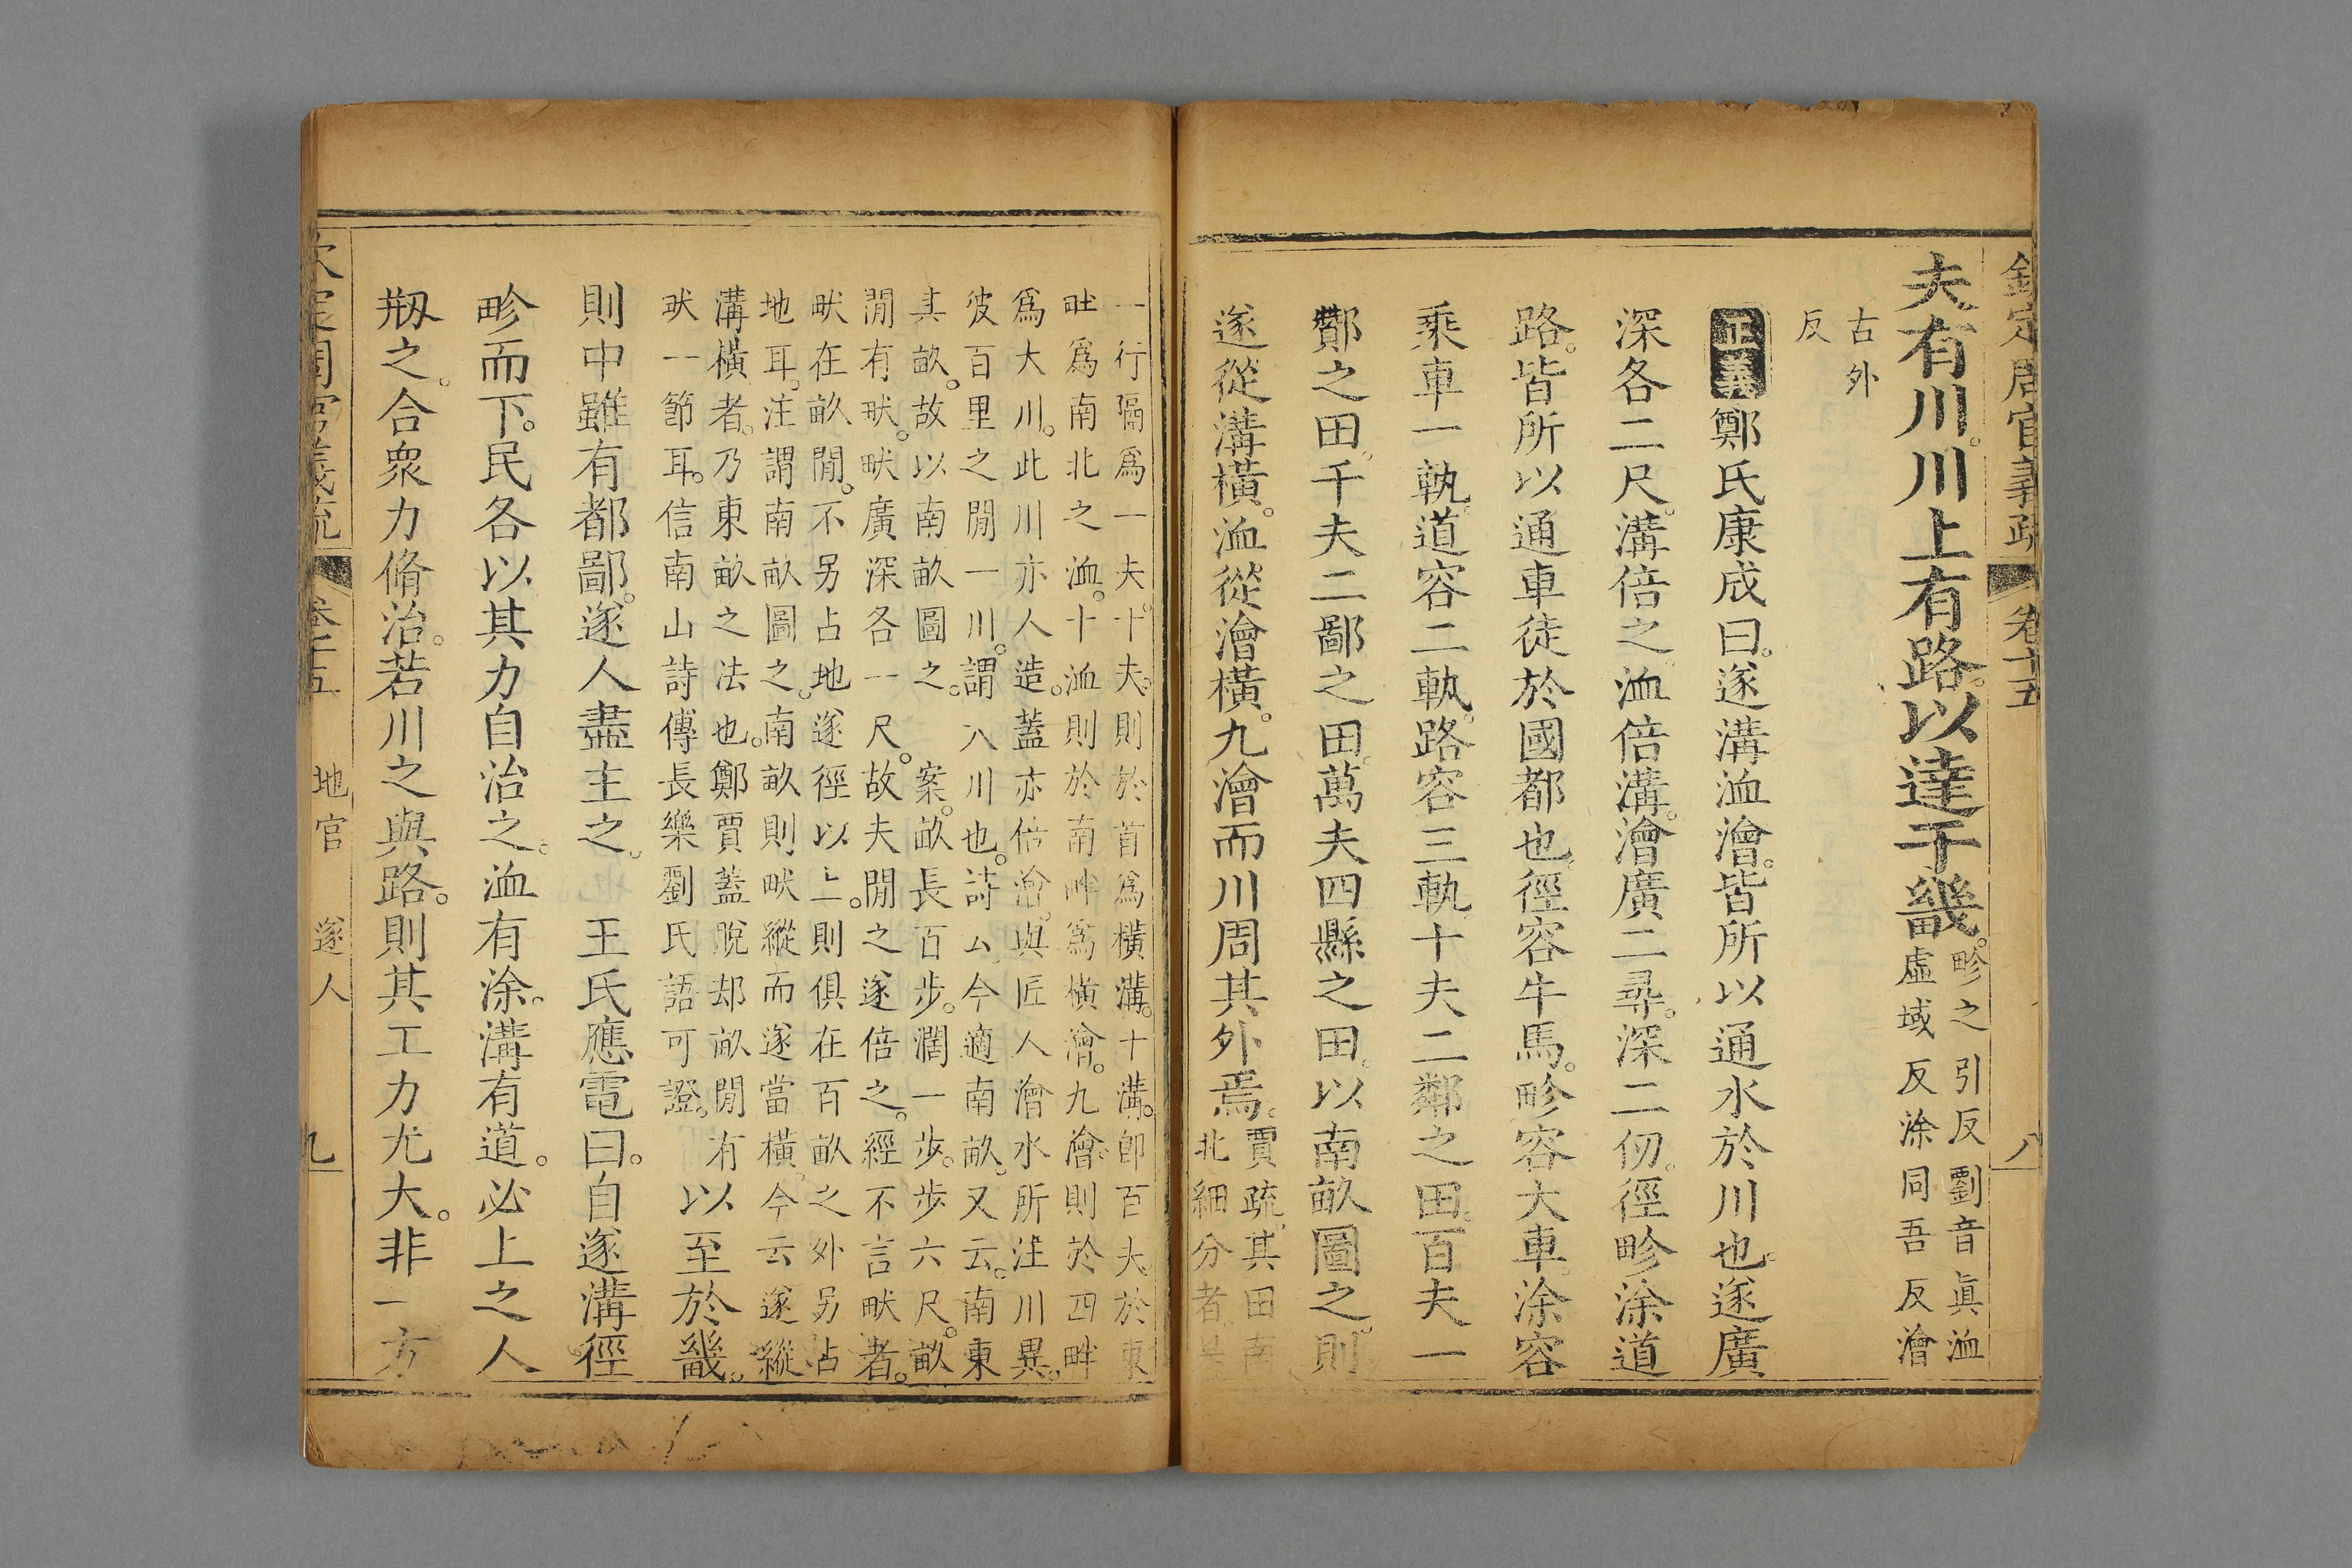 欽定周官義疏 卷十五 八
夫有川。川上有路。以達于畿。畛之引反劉音眞洫
虛域反涂同吾反澮
古外
反
正義鄭氏康成曰。遂溝洫澮。皆所以通水於川也。遂廣
深各二尺。溝倍之。洫倍溝。澮廣二尋。深二仞。徑畛涂道
路。皆所以通車徒於國都也。徑容牛馬。畛容大車。涂容
乘車一軌。道容二軌。路容三軌。十夫二鄰之田。百夫一
酇之田。千夫二鄙之田。萬夫四縣之田。以南畝圖之。則
遂從溝橫。洫從澮橫。九澮而川周其外焉。賈疏。其田南
北細分者。是
一行隔爲一夫。十夫。則於首爲橫溝。十溝。卽百夫。於東
畔爲南北之洫。十洫則於南畔爲橫澮。九澮。則於四畔
爲大川。此川亦人造。蓋亦倍澮。與匠人澮水所注川異。
彼百里之閒一川。謂八川也。詩云。今適南畝。又云。南東
其畝。故以南畝圖之。 案。畝長百步。濶一步。步六尺。畝
閒有畎。畎廣深各一尺。故夫閒之遂倍之。經不言畎者。
畎在畝閒。不另占地。遂徑以上。則俱在百畝之外另占
地耳。注謂南畝圖之。南畝則畎縱而遂當橫。今云遂縱
溝橫者。乃東畝之法也。鄭賈蓋脫却畝閒有
畎一節耳。信南山詩傳長樂劉氏語可證。
以至於畿。
則中雖有都鄙。遂人盡主之。 王氏應電曰。自遂溝徑
畛而下。民各以其力自治之。洫有涂。溝有道。必上之人
刱之。合衆力脩治。若川之與路。則其工力尤大。非一方
欽定周官義疏 卷十五 地官 遂人 九